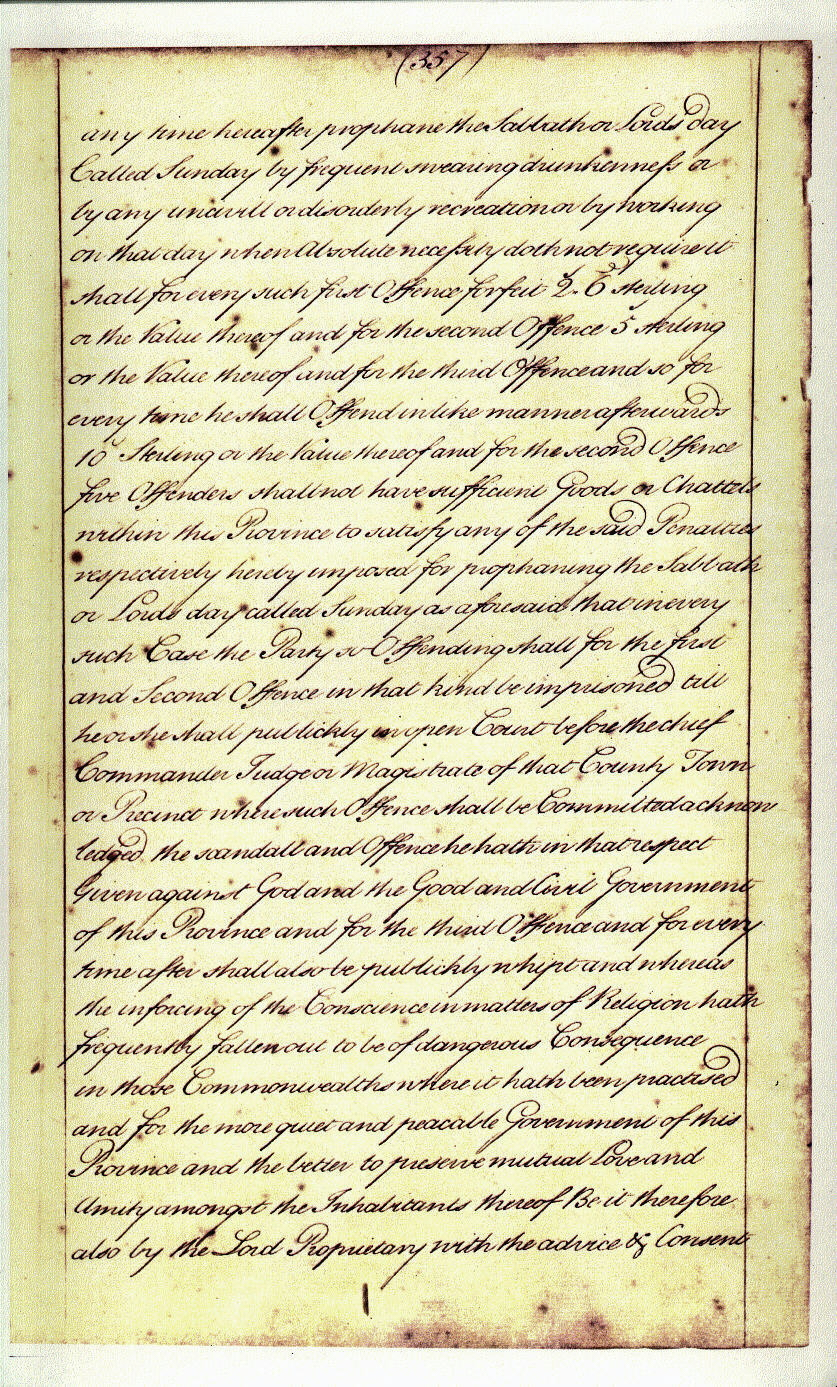 (357)
any time hereafter prophane the Sabbath or Lords day
Called Sunday by frequent swearing drunkenness or
by any uncivill or disorderly recreation or by working
on that day when Absolute necessity doth not require it
shall for every such first Offence forfeit 2s. 6d sterling
or the Value thereof and for the second Offence 5s sterling
or the Value thereof and for the third Offence and so for
every time he shall Offend in like manner afterwards
10s Sterling or the Value thereof and for the second Offence
five Offenders shall not have sufficient Goods or Chattels
within this Province to satisfy any of the said Penalties
respectively hereby imposed for prophaning the Sabbath
or Lords day called Sunday as aforesaid that in every
such Case the Party so Offending shall for the first
and Second Offence in that kind be imprisoned till
he or she shall publickly in open Court before the chief
Commander Judge or Magistrate of that County Town
or Precinct where such Offence shall be Committed acknow
ledged the scandall and Offence he hath in that respect
Given against God and the Good and Civil Government
of this Province and for the third Offence and for every
time after shall also be publickly whipt and whereas
the inforcing of the Conscience in matters of Religion hath
frequently fallen out to be of dangerous Consequence
in those Commonwealths where it hath been practised
and for the more quiet and peacable Government of this
Province and the better to preserve mutual Love and
Amity amongst the Inhabitants thereof Be it therefore
also by the Lord Proprietary with the advice & Consent